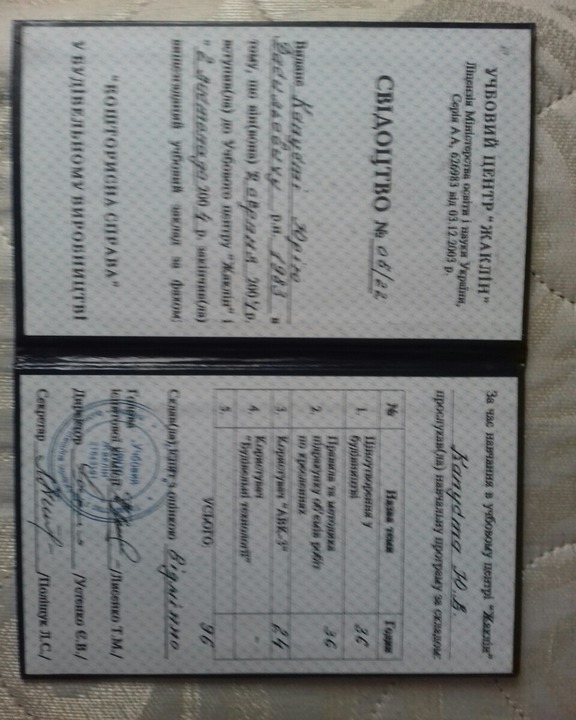 УЧБОВИЙ ЦЕНТР "ЖАКЛІН"
Ліцензія Міністерства освіти і науки України,
Серія АА, 626983 від 03.12.2003 р.
СВІДОЦТВО № 06/22
Видане Капусті Юрію
Васильовичу р.н. 1983 в
тому, що він(вона) серпня 2004 р.
вступив(ла) до Учбового центру "Жаклін" і
"2 листопада 2004 р. закінчив(ла)
вищезгаданий учбовий заклад за фахом:
"КОШТОРИСНА СПРАВА"
У БУДІВЕЛЬНОМУ ВИРОБНИЦТВІ
За час навчання в учбовому центрі "Жаклін"
Капуста Ю.В.
прослухав(ла) навчальну програму за складом:
№ Назва теми Годин
1. Ціноутворення у будівництві 36
2. Правила та методика підрахунку об'ємів робіт по кресленнях 36
3. Користувач "АВК-3" 24
4. Користувач "Будівельні технології" -
5.
УСЬОГО: 96
Склав(ла) іспит з оцінкою Відмінно
Голова
іспитової комісії /Лисенко Т.М./
Директор /Устенко Є.В./
Секретар /Поліщук Л.С./
Учбовий
центр
Жаклін